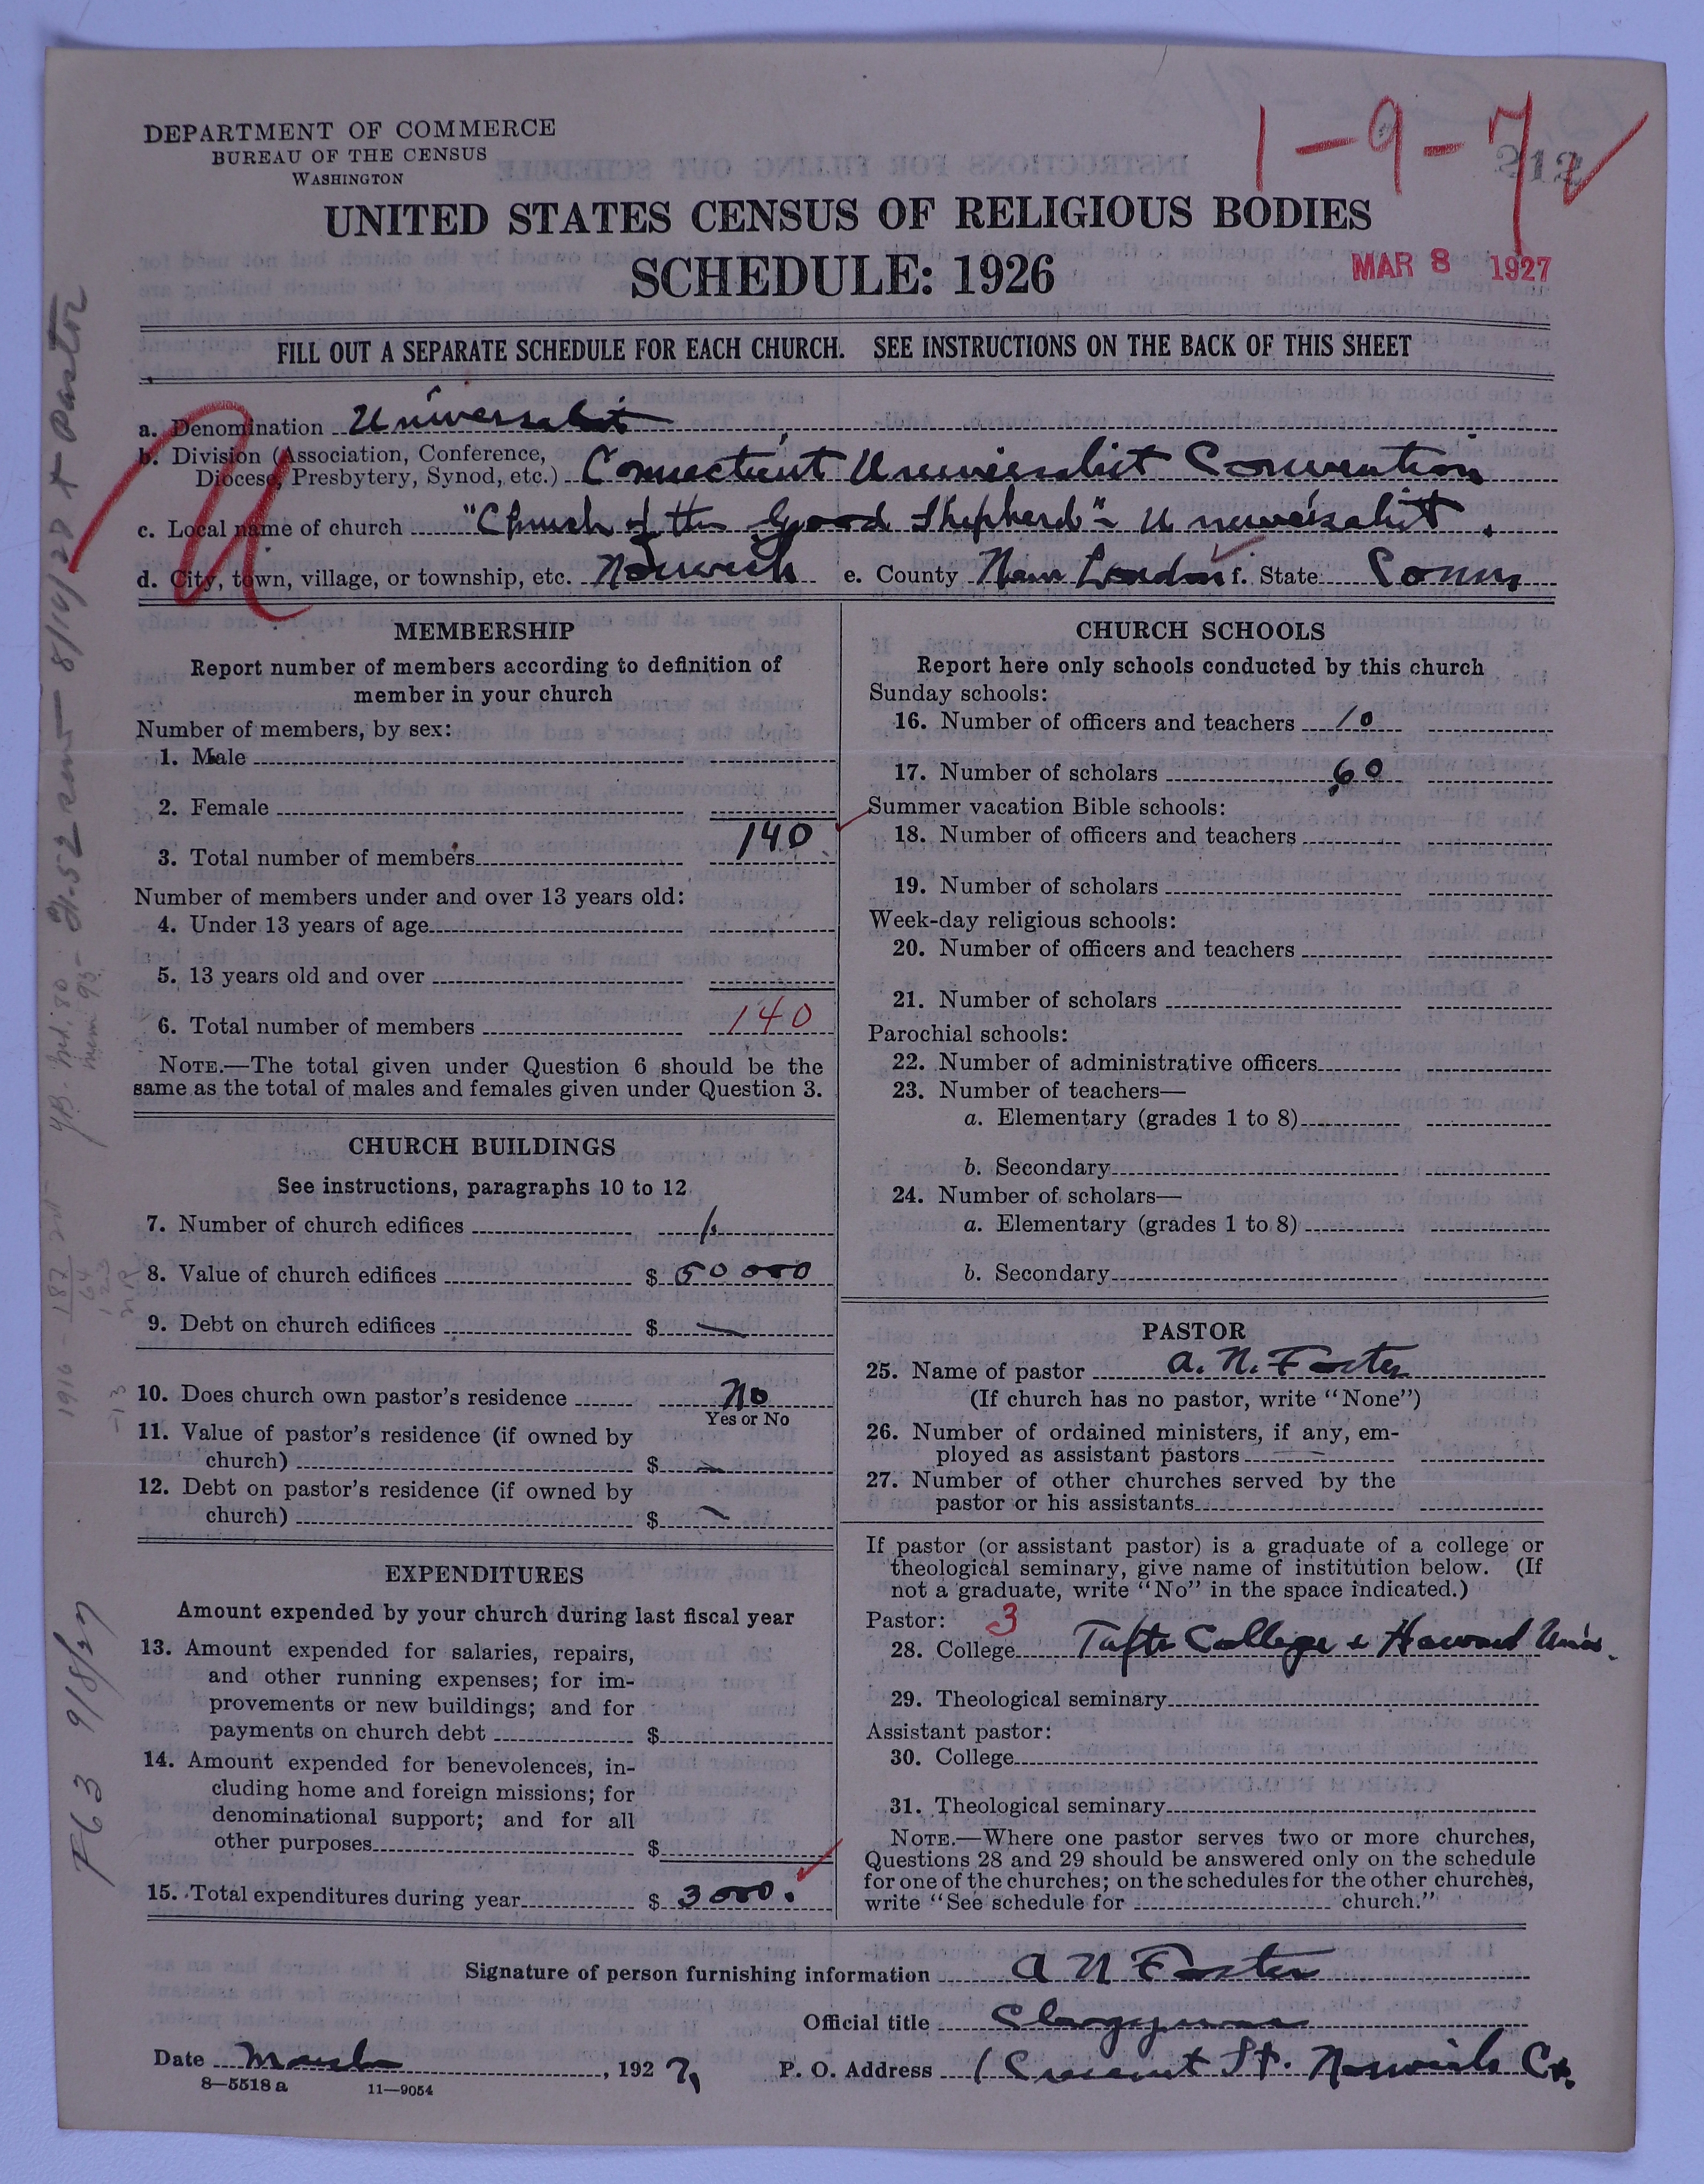 1-9-7
212
DEPARTMENT OF COMMERCE
BUREAU OF THE CENSUS
WASHINGTON
UNITED STATES CENSUS OF RELIGIOUS BODIES
SCHEDULE: 1926
MAR 8 1927
FILL OUT A SEPARATE SCHEDULE FOR EACH CHURCH. SEE INSTRUCTIONS ON THE BACK OF THIS SHEET
a. Denomination Universalist
b. Division (Association, Conference,
Diocese, Presbytery, Synod, etc.) Connecticut Universalist Convention
c. Local name of church "Church of the Good Shepherd" - Universalist.
d. City, town, village, or township, etc. Norwich e. County New London f. State Conn
MEMBERSHIP
Report number of members according to definition of
member in your church
Number of members, by sex:
1. Male
2. Female
3. Total number of members 140
Number of members under and over 13 years old:
4. Under 13 years of age
5. 13 years old and over
6. Total number of members 140
NOTE.—The total given under Question 6 should be the
same as the total of males and females given under Question 3.
CHURCH BUILDINGS
See instructions, paragraphs 10 to 12
7. Number of church edifices 1
8. Value of church edifices $ 50000
9. Debt on church edifices $ —
10. Does church own pastor's residence No
Yes or No
11. Value of pastor's residence (if owned by
church) $ —
12. Debt on pastor's residence (if owned by
church) $ —
EXPENDITURES
Amount expended by your church during last fiscal year
13. Amount expended for salaries, repairs,
and other running expenses; for im-
provements or new buildings; and for
payments on church debt $
14. Amount expended for benevolences, in-
cluding home and foreign missions; for
denominational support; and for all
other purposes $
15. Total expenditures during year $ 3000.
CHURCH SCHOOLS
Report here only schools conducted by this church
Sunday schools:
16. Number of officers and teachers 10
17. Number of scholars 60
Summer vacation Bible schools:
18. Number of officers and teachers
19. Number of scholars
Week-day religious schools:
20. Number of officers and teachers
21. Number of scholars
Parochial schools:
22. Number of administrative officers
23. Number of teachers—
a. Elementary (grades 1 to 8)
b. Secondary
24. Number of scholars—
a. Elementary (grades 1 to 8)
b. Secondary
PASTOR
25. Name of pastor A. N. Foster
(If church has no pastor, write "None")
26. Number of ordained ministers, if any, em-
ployed as assistant pastors —
27. Number of other churches served by the
pastor or his assistants
If pastor (or assistant pastor) is a graduate of a college or
theological seminary, give name of institution below. (If
not a graduate, write "No" in the space indicated.)
Pastor: 3
28. College Tufts College &
29. Theological seminary
Assistant pastor:
30. College
31. Theological seminary
NOTE.—Where one pastor serves two or more churches,
Questions 28 and 29 should be answered only on the schedule
for one of the churches; on the schedules for the other churches,
write "See schedule for church."
Signature of person furnishing information A N Foster
Official title Clergyman
Date March, 1927 P. O. Address 1 Crescent St. Norwich Ct.
8—5518 a 11—9054
F63 9/8/27